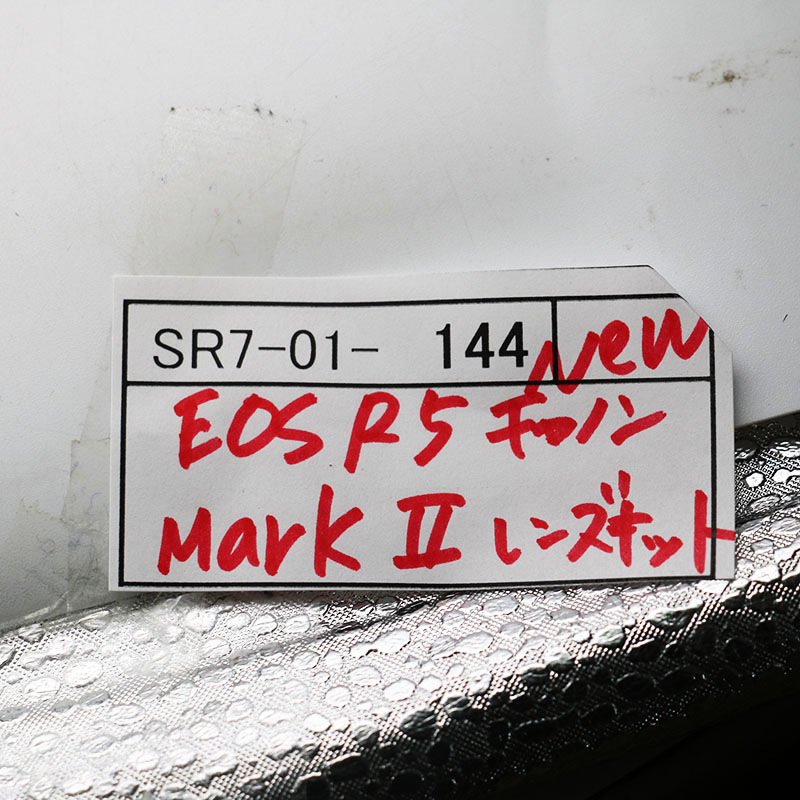 SR7-01- 144 New
EOS R5 キヤノン
Mark II レンズキット